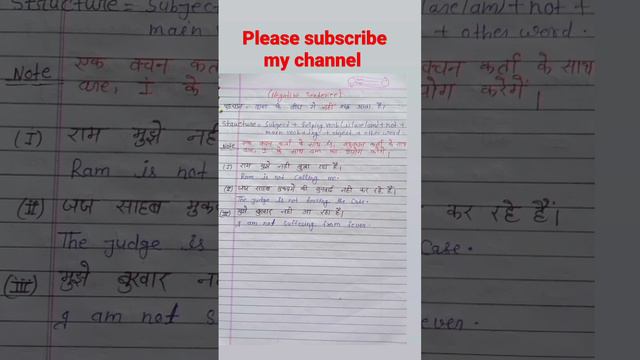 Please subscribe
my channel
(Negative Sentence)
पहचान - वाक्य के बीच में नहीं आता है।
Structure = Subject + helping verb (is/are/am) + not +
main verb + ing + object + other word
Note एक वचन कर्ता के साथ is, बहुवचन कर्ता के साथ
are, I के साथ am का प्रयोग करेंगें।
(I) राम मुझे नहीं बुला रहा है।
Ram is not calling me.
(II) जज साहब मुकदमे की सुनवाई नहीं कर रहे हैं।
The judge is not hearing the case.
(III) मुझे बुखार नहीं आ रहा है।
I am not suffering from fever.
Structure = Subject
main
Note एक वचन कर्ता
are, I के
(I) राम मुझे नहीं
Ram is not
(II) जज साहब मुक
The judge is
(III) मुझे बुखार न
I am not s
/are/am) + not +
+ other word.
वचन कर्ता के साथ
योग करेंगें।
कर रहे हैं।
case.
ever.